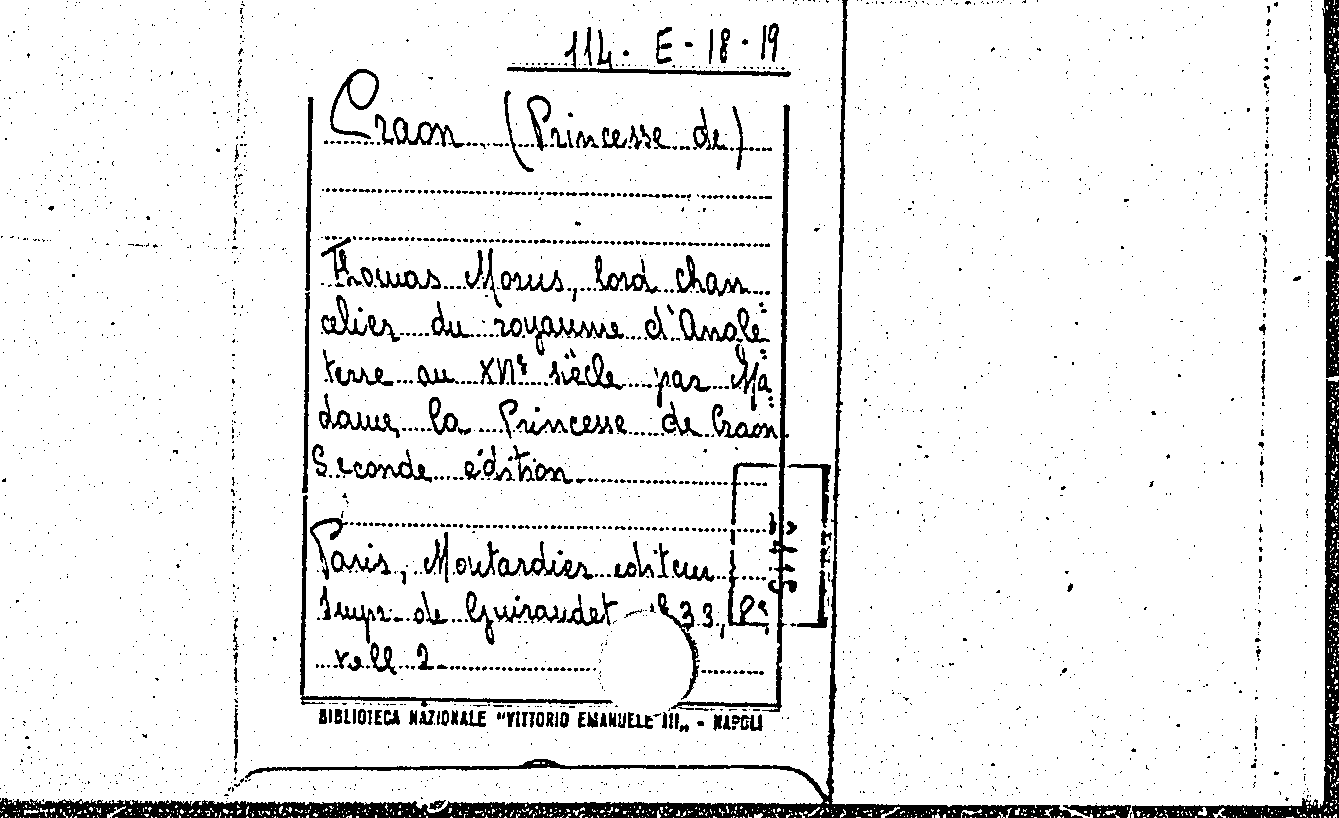 114. E - 18 - 19
Craon (Princesse de)
Thomas Morus, lord chan
celier du royaume d'Angle
terre au XVIe siècle par Ma
dame la Princesse de Craon
Seconde édition
Paris, Moutardier editeur
Impr. de Guiraudet 1833, 8°,
rell 2
BIBLIOTECA NAZIONALE "VITTORIO EMANUELE III„ - NAPOLI